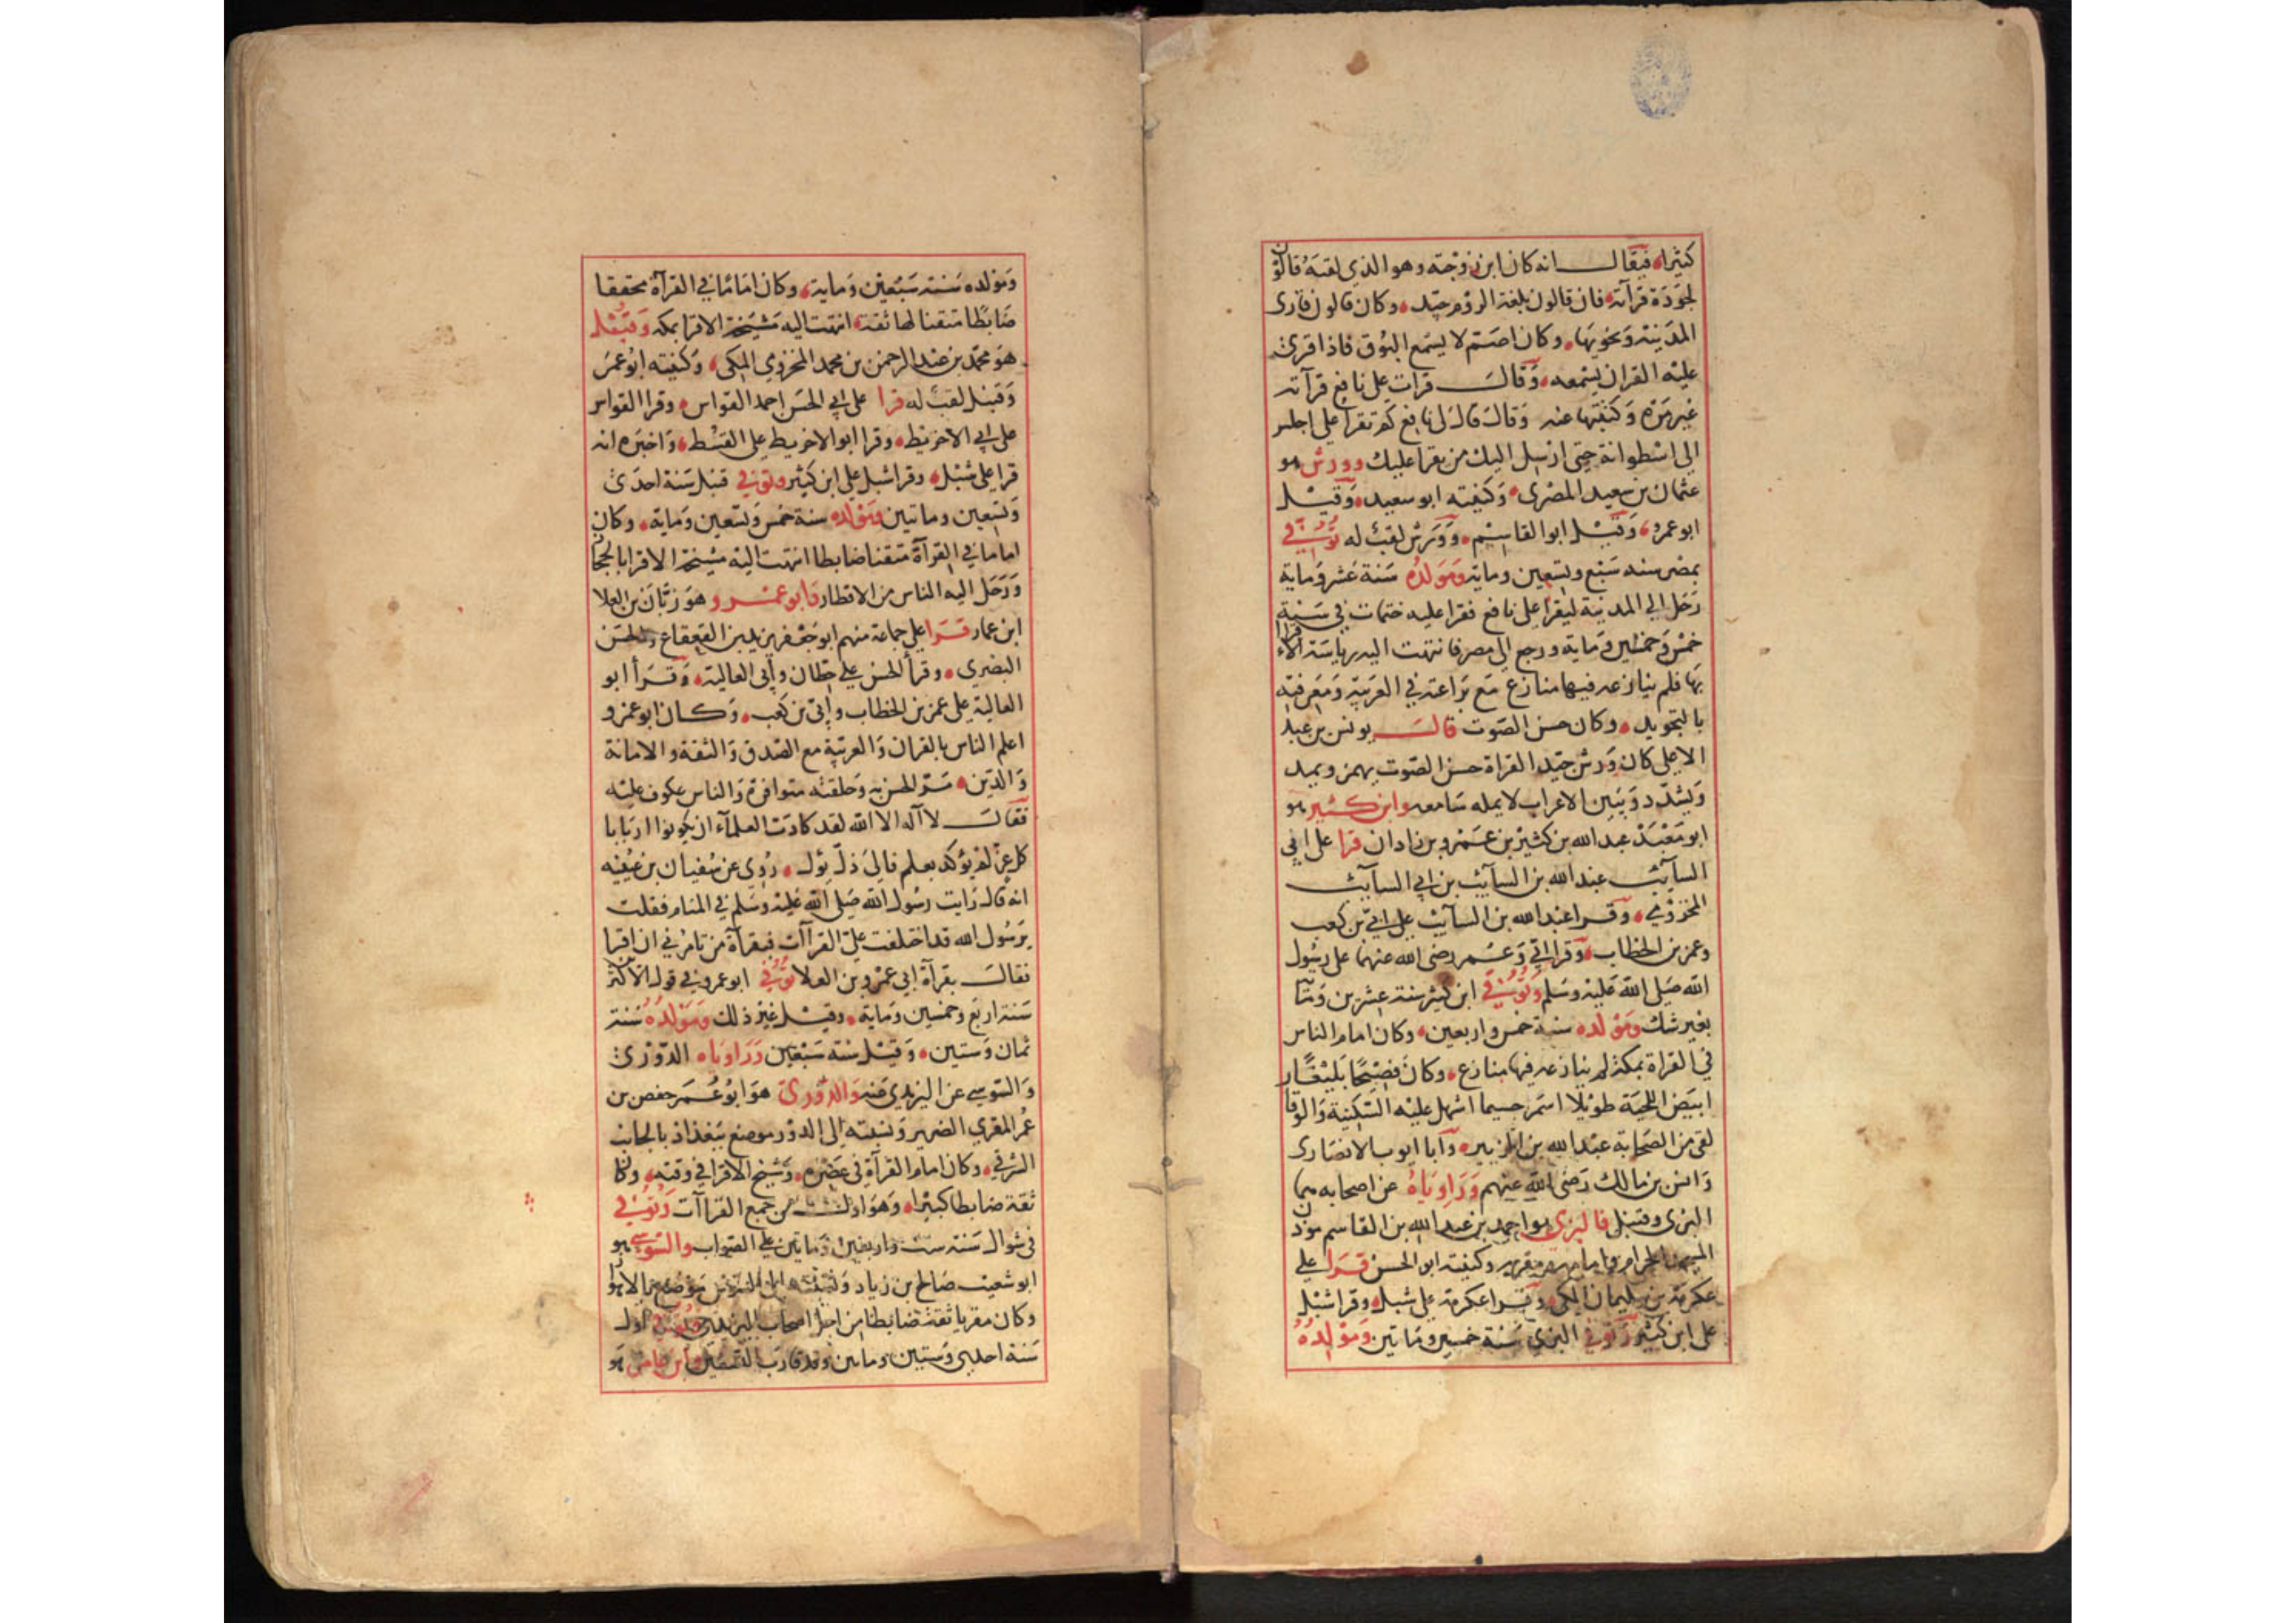 كثيرا فيقال انه كان ابن زوجته وهو الذي لقبه قالون
لجودة قرآته فان قالون بلغة الروم جيد وكان قالون قارى
المدينة ونحويها وكان اصم لا يسمع البوق فاذا قرئ
عليه القران يسمعه وقال قرات على نافع قرآته
غير مرة وكتبتها عنه وقال قال لى نافع كم تقرا على اجلس
الى اسطوانة حتى ارسل اليك من يقرا عليك وورش هو
عثمان بن سعيد المصرى وكنيته ابو سعيد وقيل
ابو عمرو وقيل ابو القاسم وورش لقب له توفي
بمصر سنه سبع وتسعين وماية ومولده سنة عشر وماية
رحل الى المدينة ليقرا على نافع فقرا عليه ختمات في سنة
خمس وخمسين وماية ورجع الى مصر فانتهت اليه رياسة الاقراء
بها فلم ينازعه فيها منازع مع براعته في العربية ومعرفته
بالتجويد وكان حسن الصوت قال يونس بن عبد
الاعلى كان ورش جيد القراة حسن الصوت يهمز ويمد
ويشدد ويبين الاعراب لا يمله سامعه وابن كثير هو
ابو معبد عبد الله بن كثير بن عمرو بن زادان قرا على ابي
السآئب عبد الله بن السآئب بن ابي السآئب
المخزومي وقرا عبد الله بن السآئب على ابي بن كعب
وعمر بن الخطاب وقرا ابي وعمر رضى الله عنهما على رسول
الله صلى الله عليه وسلم وتوفي ابن كثير سنة عشرين ومآئة
بغير شك ومولده سنة خمس واربعين وكان امام الناس
في القراة بمكة لم ينازعه فيها منازع وكان فصيحا بليغا
ابيض اللحية طويلا اسمر جسيما اشهل عليه السكينة والوقار
لقى من الصحابة عبد الله بن الزبير وابا ايوب الانصارى
وانس بن مالك رضى الله عنهم وراوياه عن اصحابه هما
البزى وقنبل فالبزى هو احمد بن عبد الله بن القاسم موذن
المسجد الحرام وامامه ومقريه وكنيته ابو الحسن قرا على
عكرمة بن سليمان المكى وقرا عكرمة على شبل وقرا شبل
على ابن كثير وتوفي البزي سنة خمسين وماتين ومولده
ومولده سنة سبعين وماية وكان اماما في القرآة محققا
ضابطا متقنا لها ثقة انتهت اليه مشيخة الاقرا بمكه وقنبل
هو محمد بن عبد الرحمن بن محمد المخزومي المكى وكنيته ابو عمر
وقنبل لقب له قرا على ابي الحسن احمد القواس وقرا القواس
على ابي الاخريط وقرا ابو الاخريط على القسط واخبره انه
قرا على شبل وقرا شبل على ابن كثير وتوفي قنبل سنة احدى
وتسعين وماتين ومولده سنة خمس وتسعين وماية وكان
اماما في القرآة متقنا ضابطا انتهت اليه مشيخة الاقرا بالحجاز
ورحل اليه الناس من الاقطار وابو عمرو هو زبان بن العلا
ابن عمار قرا على جماعة منهم ابو جعفر يزيد بن القعقاع والحسن
البصري وقرأ الحسن على حطان وابي العالية وقرأ ابو
العالية على عمر بن الخطاب وابي بن كعب وكان ابو عمرو
اعلم الناس بالقران والعربية مع الصدق والثقة والامانة
والدين مر الحسن به وحلقته متوافرة والناس عكوف عليه
فقال لا آله الا الله لقد كادت العلمآء ان يكونوا اربابا
كل عز لم يؤكد بعلم فالى ذل يؤل روى عن سفيان بن عيينه
انه قال رايت رسول الله صلى الله عليه وسلم في المنام فقلت
يرسول الله قد اختلفت على القراآت فبقرآة من تامرني ان اقرا
فقال بقرآة ابي عمرو بن العلا توفي ابو عمرو في قول الاكثر
سنة اربع وخمسين وماية وقيل غير ذلك ومولده سنة
ثمان وستين وقيل سنة سبعين وراوياه الدوري
والسوسي عن اليزيدي عنه والدورى هو ابو عمر حفص بن
عمر المقري الضرير ونسبته الى الدور موضع ببغداد بالجانب
الشرقي وكان امام القرآة في عصره وشيخ الاقرا في وقته وكان
ثقة ضابطا كبيرا وهو اول من جمع القراآت وتوفي
في شوال سنة ست واربعين وماتين على الصواب والسوسي هو
ابو شعيب صالح بن زياد ونسبته الى السوس موضع بالاهواز
وكان مقريا ثقة ضابطا من اجل اصحاب اليزيدي وتوفي اول
سنة احدى وستين وماتين وقد قارب التسعين وابن عامر هو